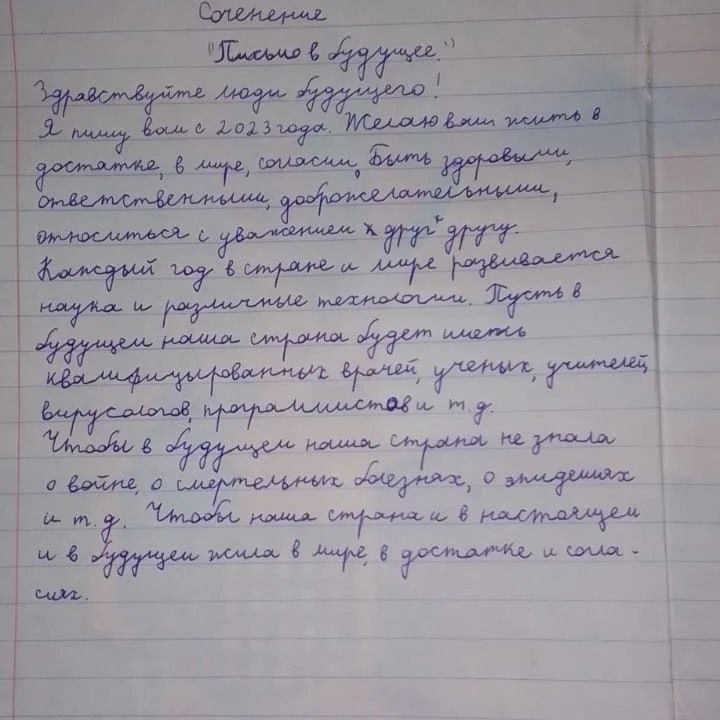 Соченение
"Письмо в будущее."
Здравствуйте люди будущего!
Я пишу вам с 2023 года. Желаю вам жить в
достатке, в мире, согласии. Быть здоровыми,
ответственными, доброжелательными,
относиться с уважением к друг другу.
Каждый год в стране и мире развивается
наука и различные технологии. Пусть в
будущем наша страна будет иметь
квалифицырованных врачей, ученых, учителей,
вирусологов, программистов и т.д.
Чтобы в будущем наша страна не знала
о войне, о смертельных болезнях, о эпидемиях
и т.д. Чтобы наша страна и в настоящем
и в будущем жила в мире, в достатке и согла-
сиях.